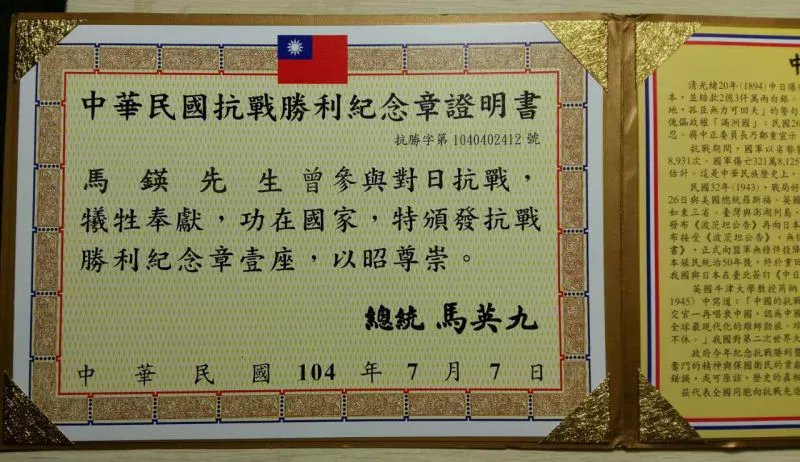 中華民國抗戰勝利紀念章證明書
抗勝字第 1040402412 號
馬鍈先生曾參與對日抗戰，
犧牲奉獻，功在國家，特頒發抗戰
勝利紀念章壹座，以昭尊崇。
總統 馬英九
中華民國 104 年 7 月 7 日
中
清光緒20年(1894)中日爆
本，並賠款2億3仟萬兩白銀。
地，孤臣無力可回天」的聲句
傀儡政權「滿洲國」；民國26
忍。蔣中正委員長乃鄭重宣示
抗戰期間，國軍以劣勢
8,931次。國軍傷亡321萬8,125
估計。這是中華民族歷史上，
民國32年(1943)，戰局好
26日與美國總統羅斯福、英國
如東三省、臺灣與澎湖列島，
發布《波茨坦公告》再向日本
布接受《波茨坦公告》，無
書》，正式向盟軍無條件投降
本殖民統治50年後，終於重回
我國與日本在臺北簽訂《中日
英國牛津大學教授芮納
1945》中寫道：「中國的抗戰
交官一再唱衰中國，認為中國
全球最現代化的雄師勁旅。
不休。」我國對第二次世界大
政府今年紀念抗戰勝利
奮鬥的精神與保國衛民的貢獻
錯誤，或可原諒，歷史的真相
茲代表全國同胞向抗戰先進